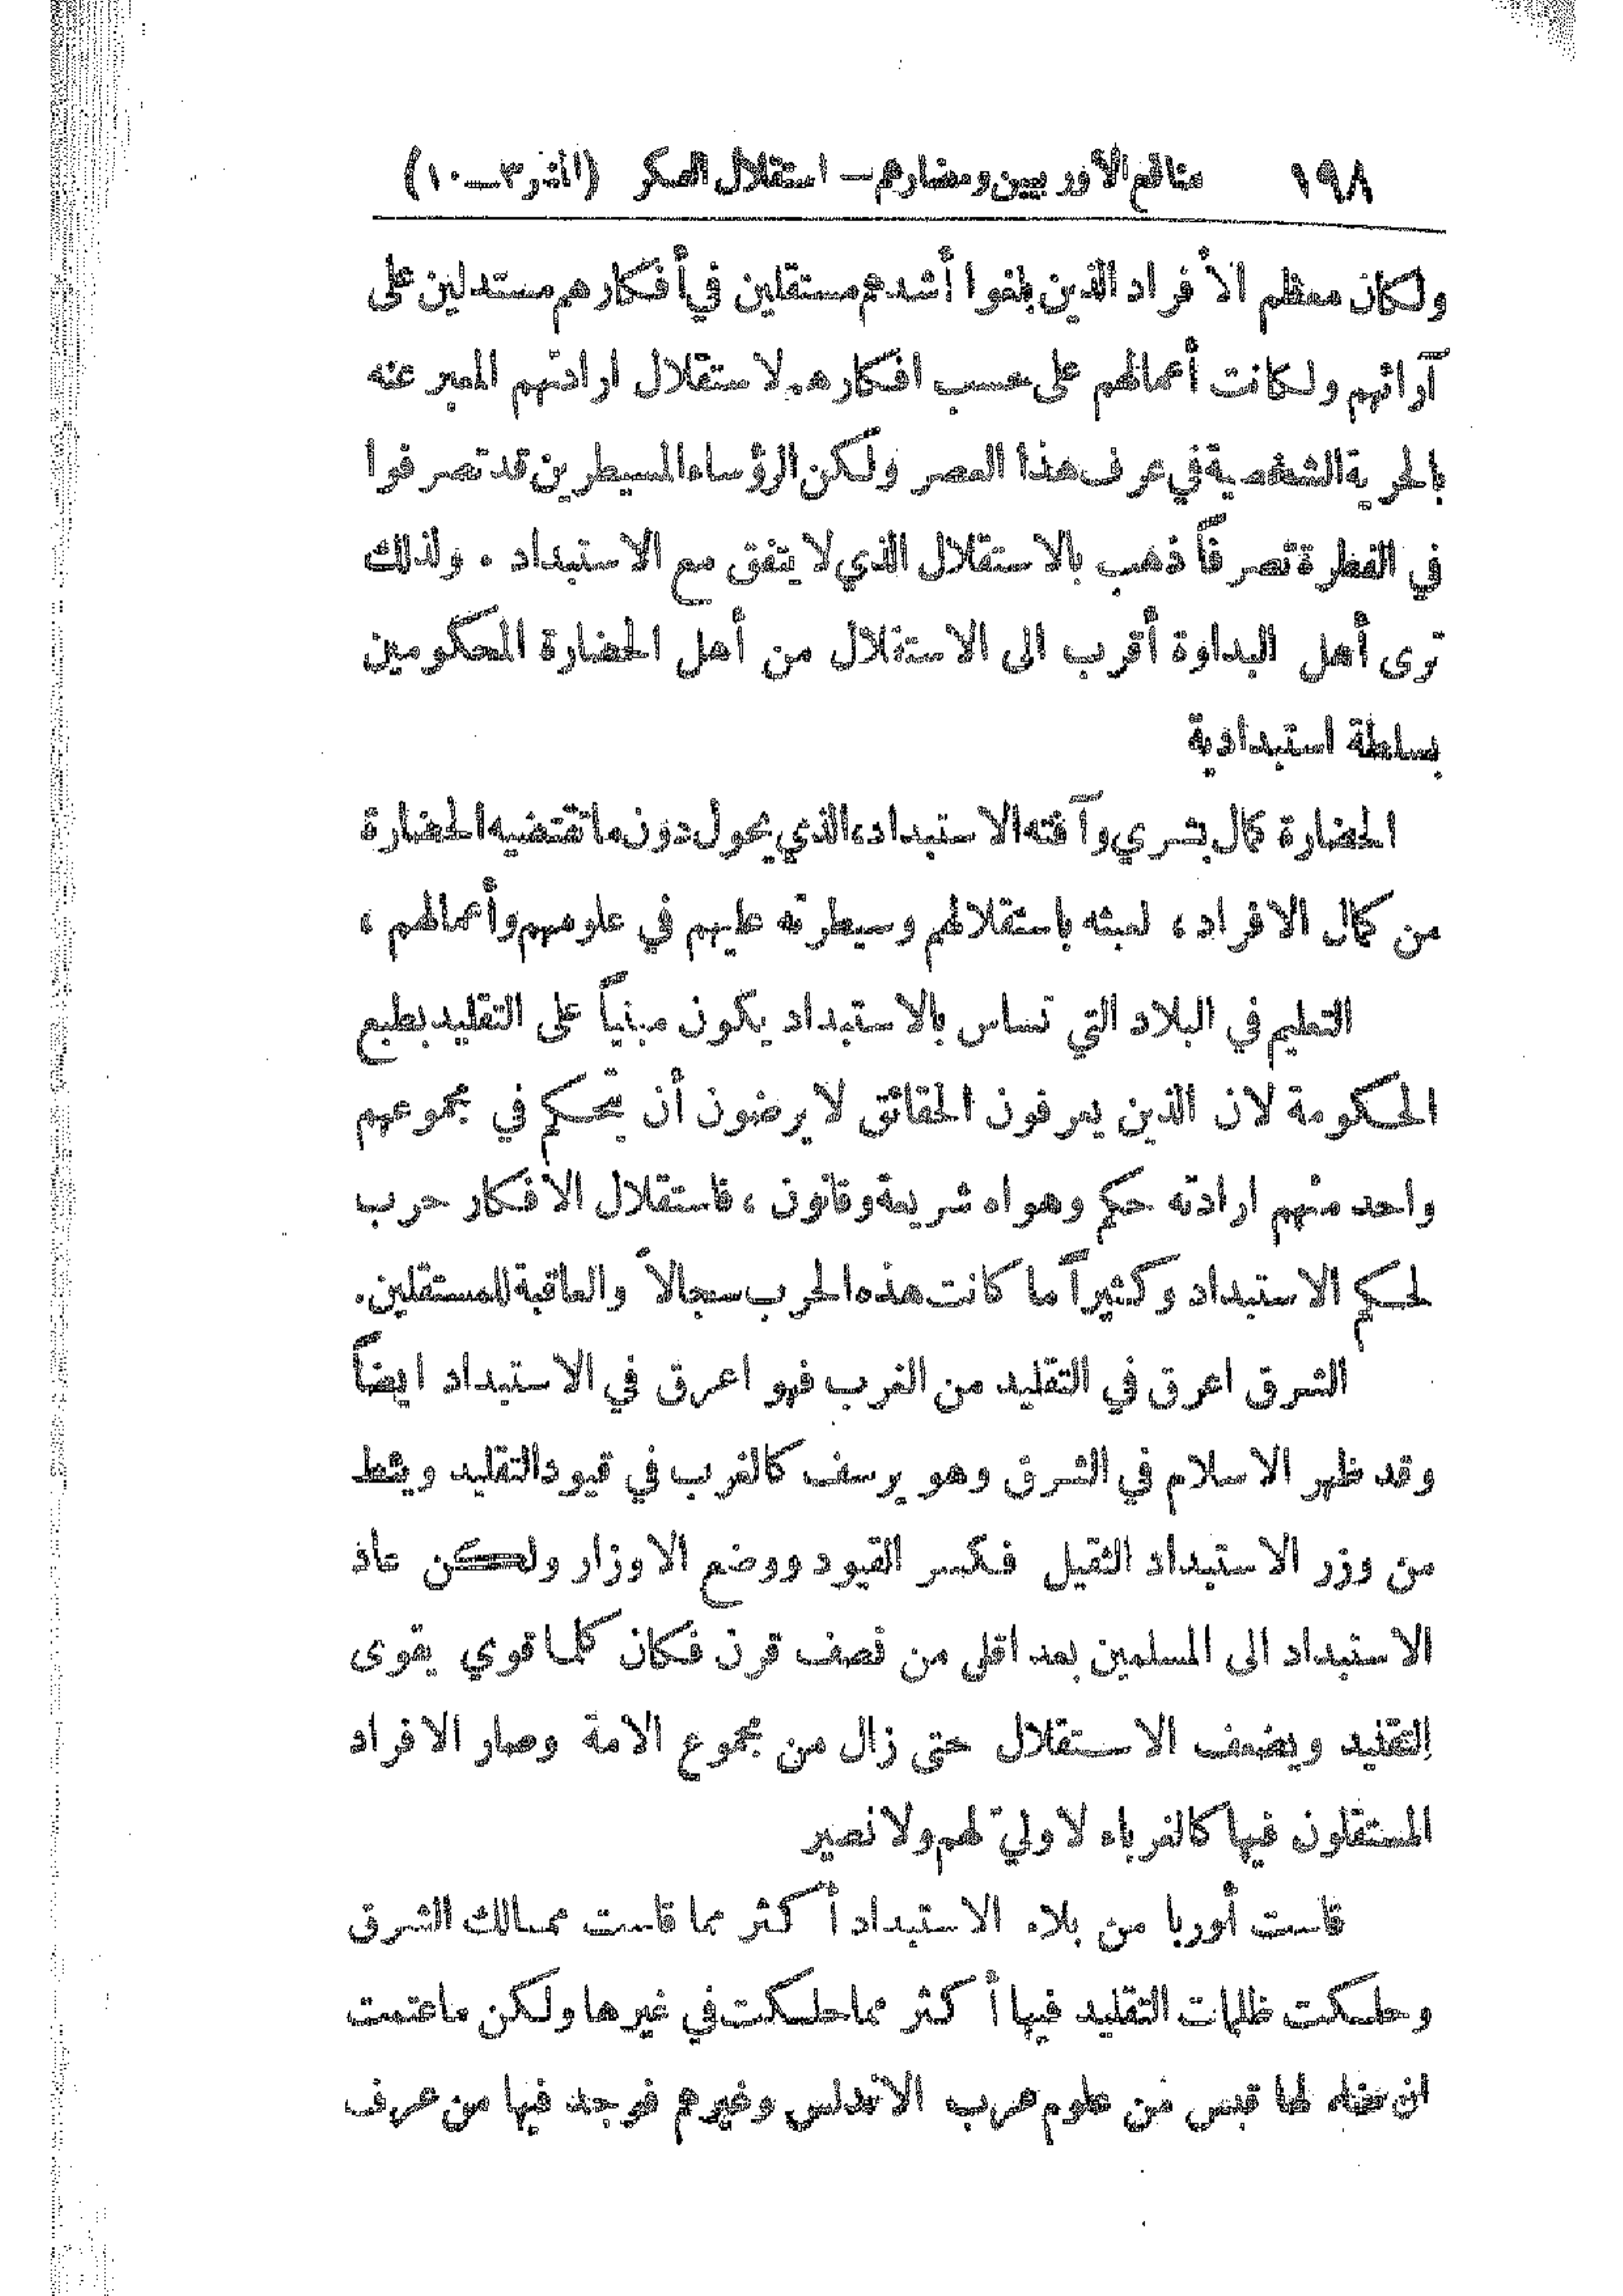 ١٩٨ منافع الأوربيين ومضارهم — استقلال الفكر (المنار ٣—١٠)
ولكان معظم الأفراد الذين بلغوا أشدهم مستقلين في أفكارهم مستدلين على
آرائهم ولكانت أعمالهم على حسب افكارهم لاستقلال ارادتهم المعبر عنه
بالحرية الشخصية في عرف هذا العصر ولكن الرؤساء المسيطرين قد تصرفوا
في الفطرة تصرفاً ذهب بالاستقلال الذي لا يتفق مع الاستبداد . ولذلك
ترى أهل البداوة أقرب الى الاستقلال من أهل الحضارة المحكومين
بسلطة استبدادية
الحضارة كمال بشري وآفته الاستبداد، الذي يحول دون ما تقتضيه الحضارة
من كمال الافراد ، لعبثه باستقلالهم وسيطرته عليهم في علومهم وأعمالهم ،
التعليم في البلاد التي تساس بالاستبداد يكون مبنياً على التقليد بطبع
الحكومة لان الذين يعرفون الحقائق لا يرضون أن يتحكم في مجموعهم
واحد منهم ارادته حكم وهواه شريعة وقانون ، فاستقلال الأفكار حرب
لحكم الاستبداد وكثيراً ما كانت هذه الحرب سجالاً والعاقبة للمستقلين .
الشرق اعرق في التقليد من الغرب فهو اعرق في الاستبداد ايضاً
وقد ظهر الاسلام في الشرق وهو يرسف كالغرب في قيود التقليد ويئط
من وزر الاستبداد الثقيل فكسر القيود ووضع الاوزار ولكن عاد
الاستبداد الى المسلمين بعد اقل من نصف قرن فكان كلما قوي يقوى
التقليد ويضعف الاستقلال حتى زال من مجموع الامة وصار الافراد
المستقلون فيها كالغرباء لا وليّ لهم ولا نصير
قاست أوربا من بلاء الاستبداد أكثر مما قاست ممالك الشرق
وحلكت ظلمات التقليد فيها أكثر مما حلكت في غيرها ولكن ما عتمت
ان ضاء لها قبس من علوم عرب الاندلس وغيرهم فوجد فيها من عرف